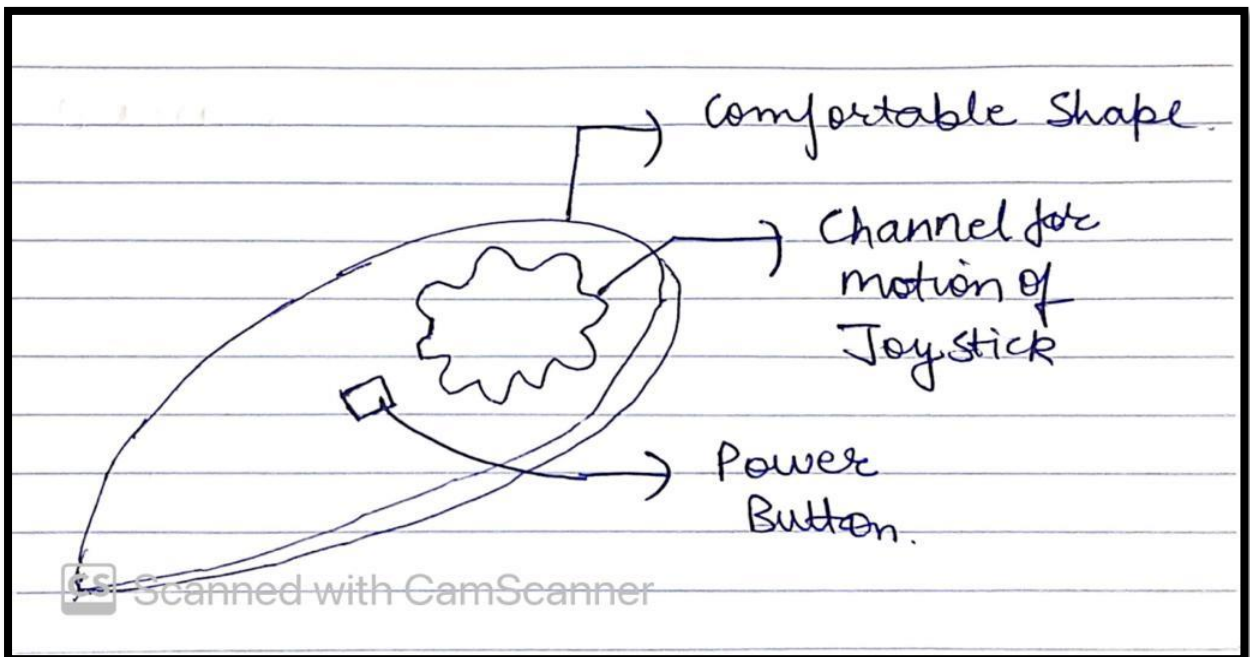 Comfortable Shape.
Channel for
motion of
Joystick
Power
Button.
CS Scanned with CamScanner